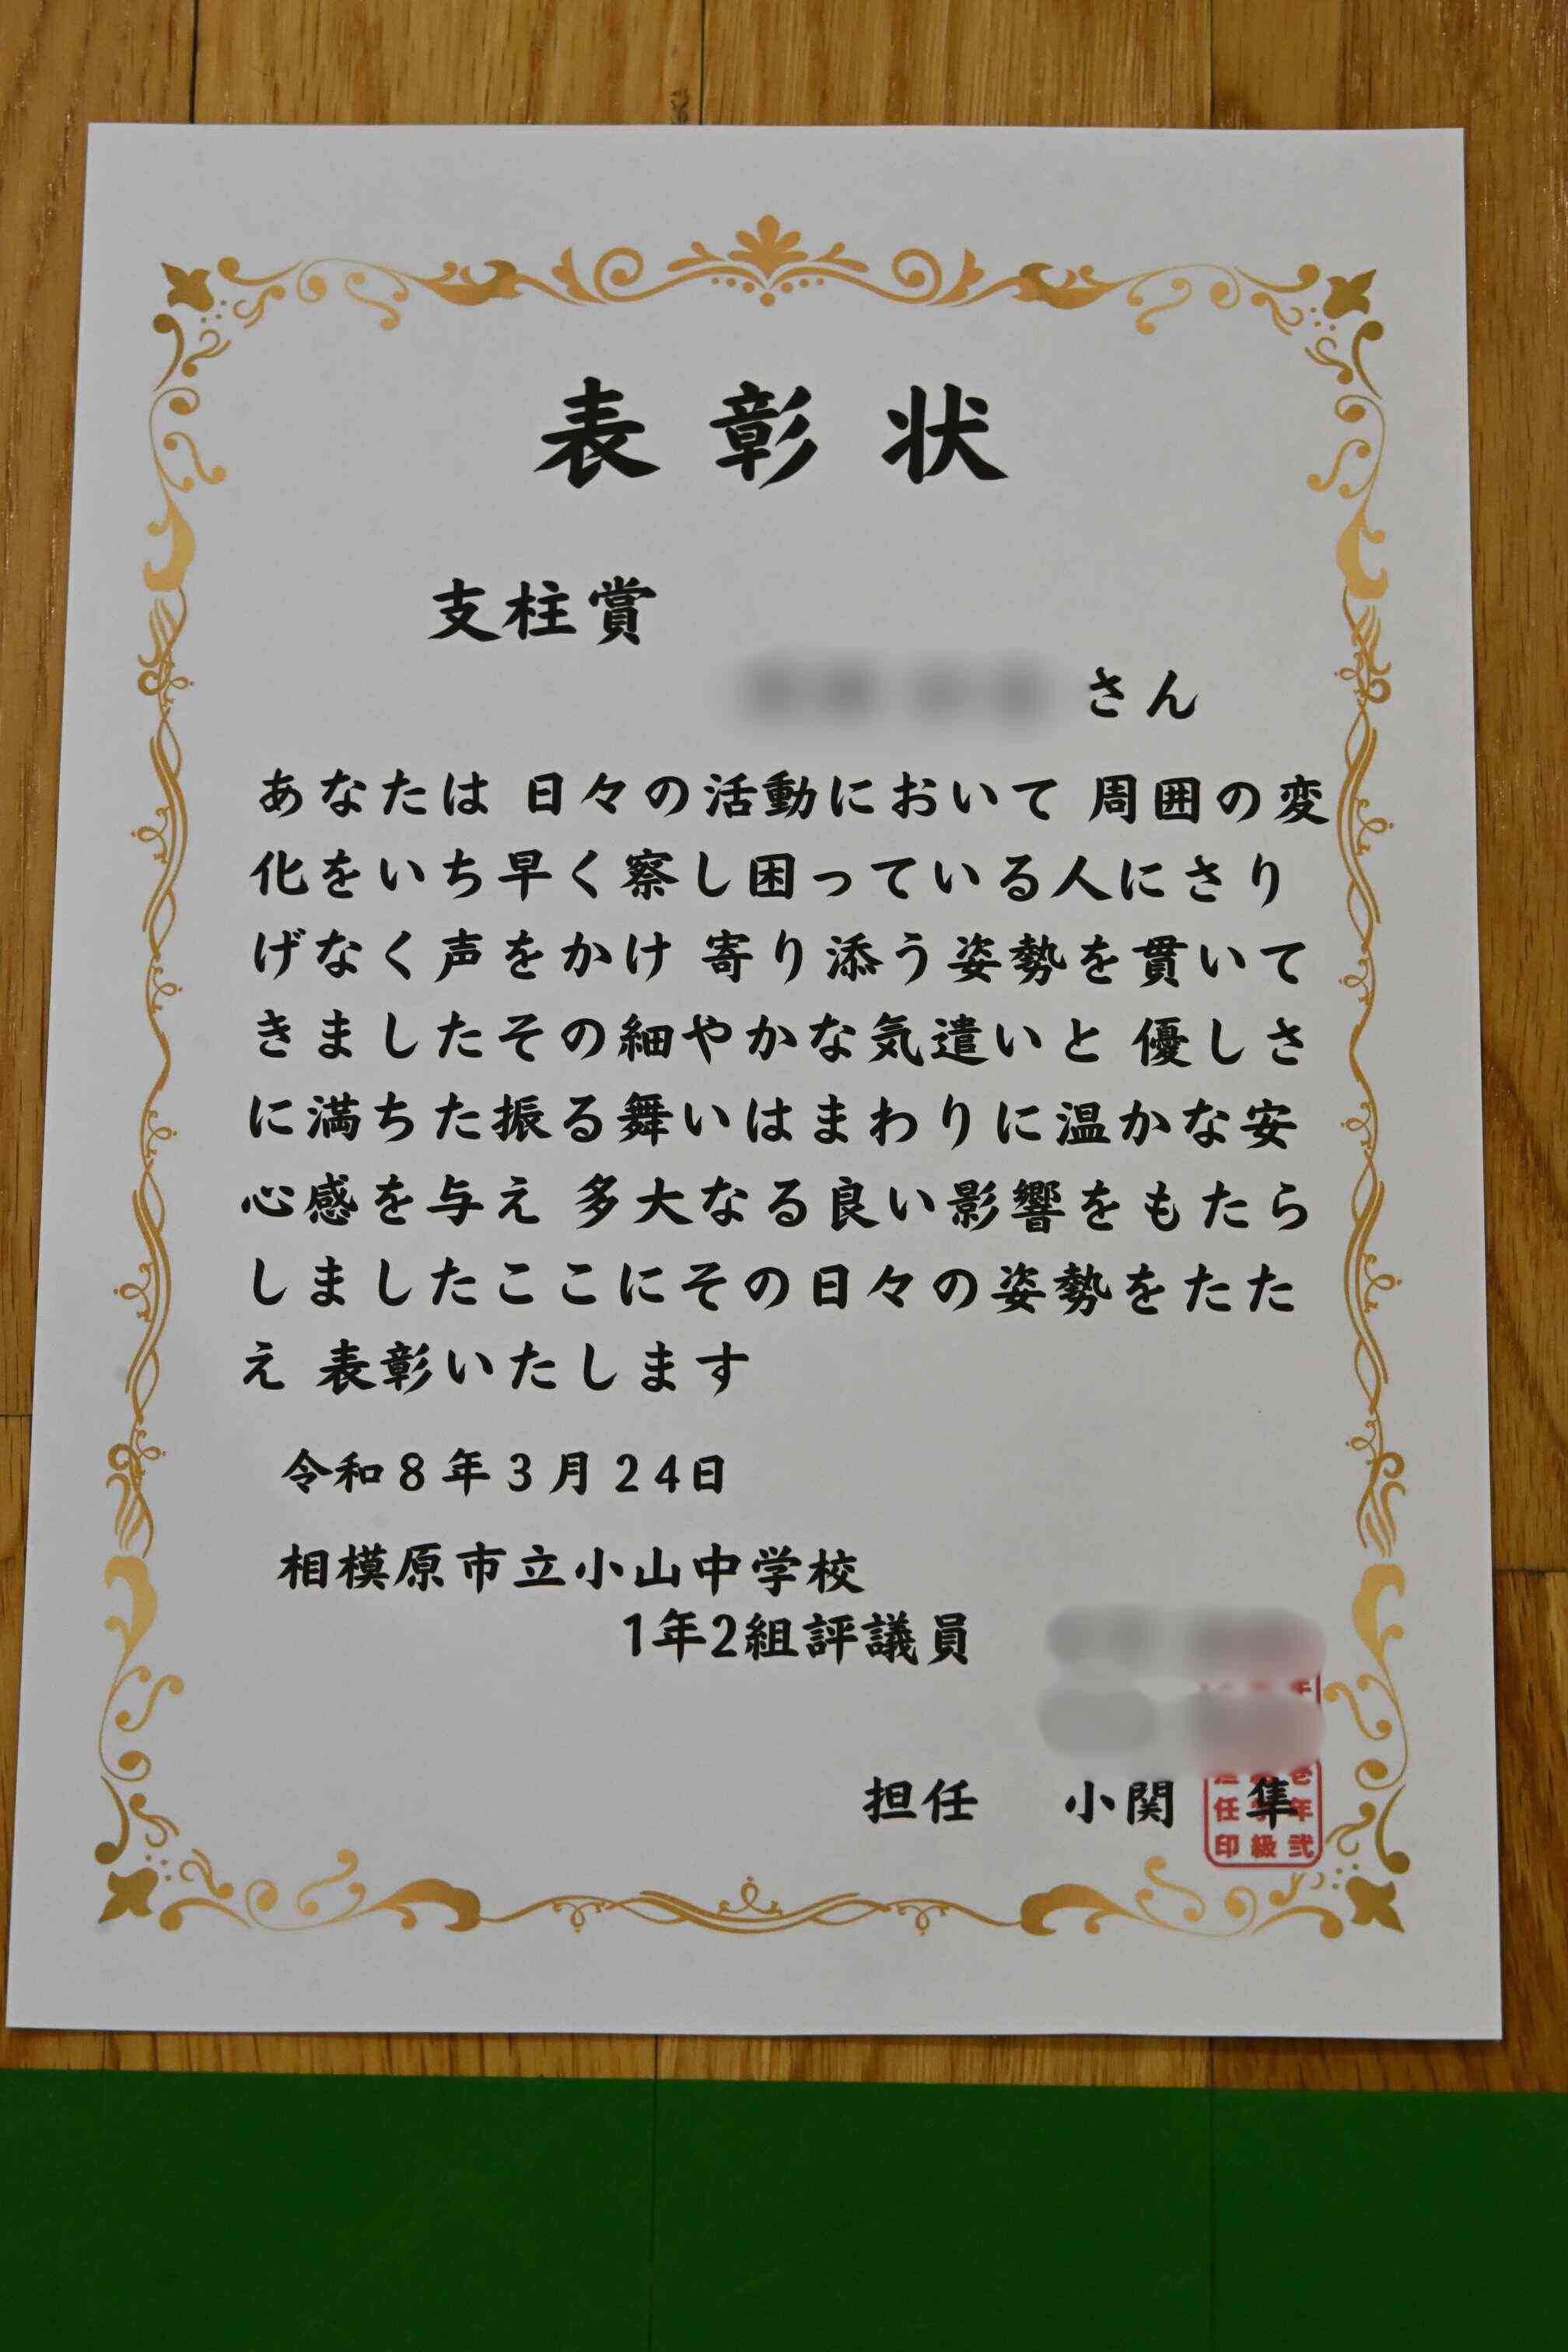 表彰状
支柱賞
さん
あなたは 日々の活動において 周囲の変
化をいち早く察し困っている人にさり
げなく声をかけ 寄り添う姿勢を貫いて
きましたその細やかな気遣いと 優しさ
に満ちた振る舞いはまわりに温かな安
心感を与え 多大なる良い影響をもたら
しましたここにその日々の姿勢をたた
え 表彰いたします
令和8年3月24日
相模原市立小山中学校
1年2組評議員
担任 小関 隼